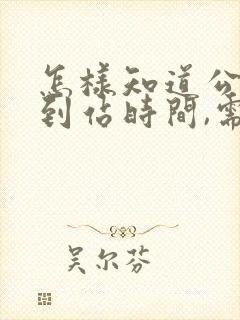 怎樣知道公
到佔時間,需
吴尔芬